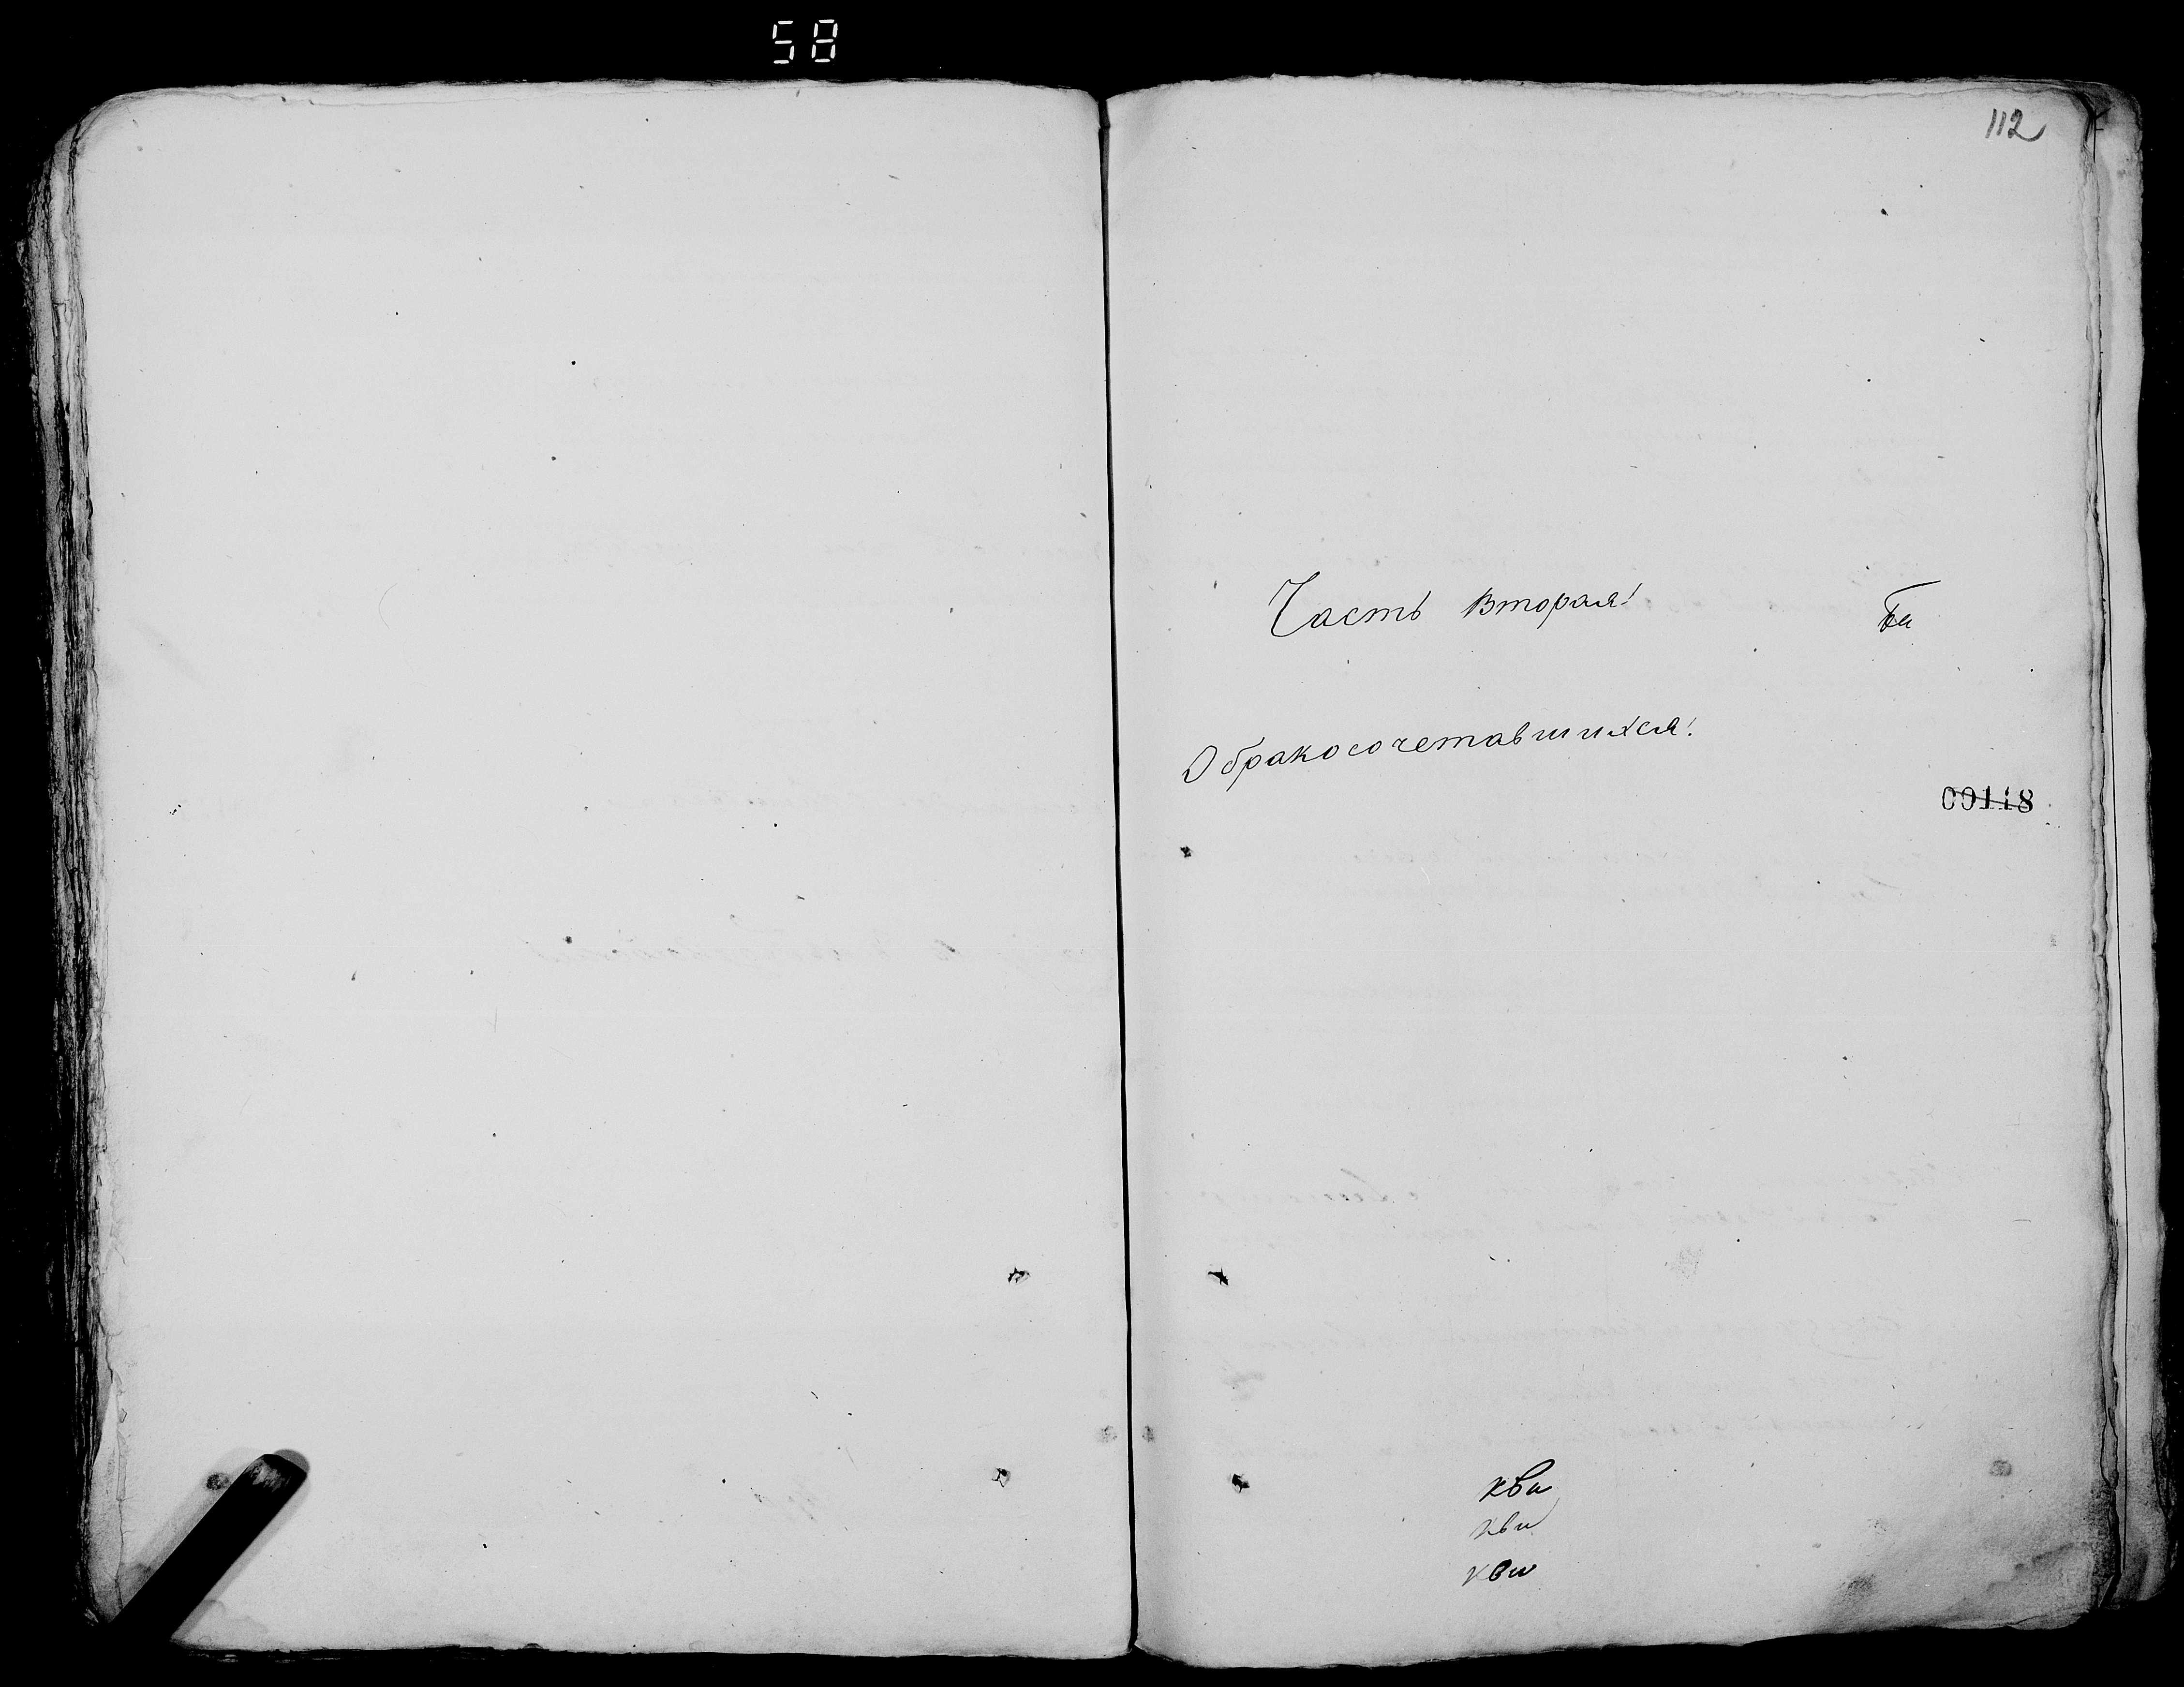 58
112
Часть Вторая!
Обракосочетавшихся!
00118
кви
кви
кви